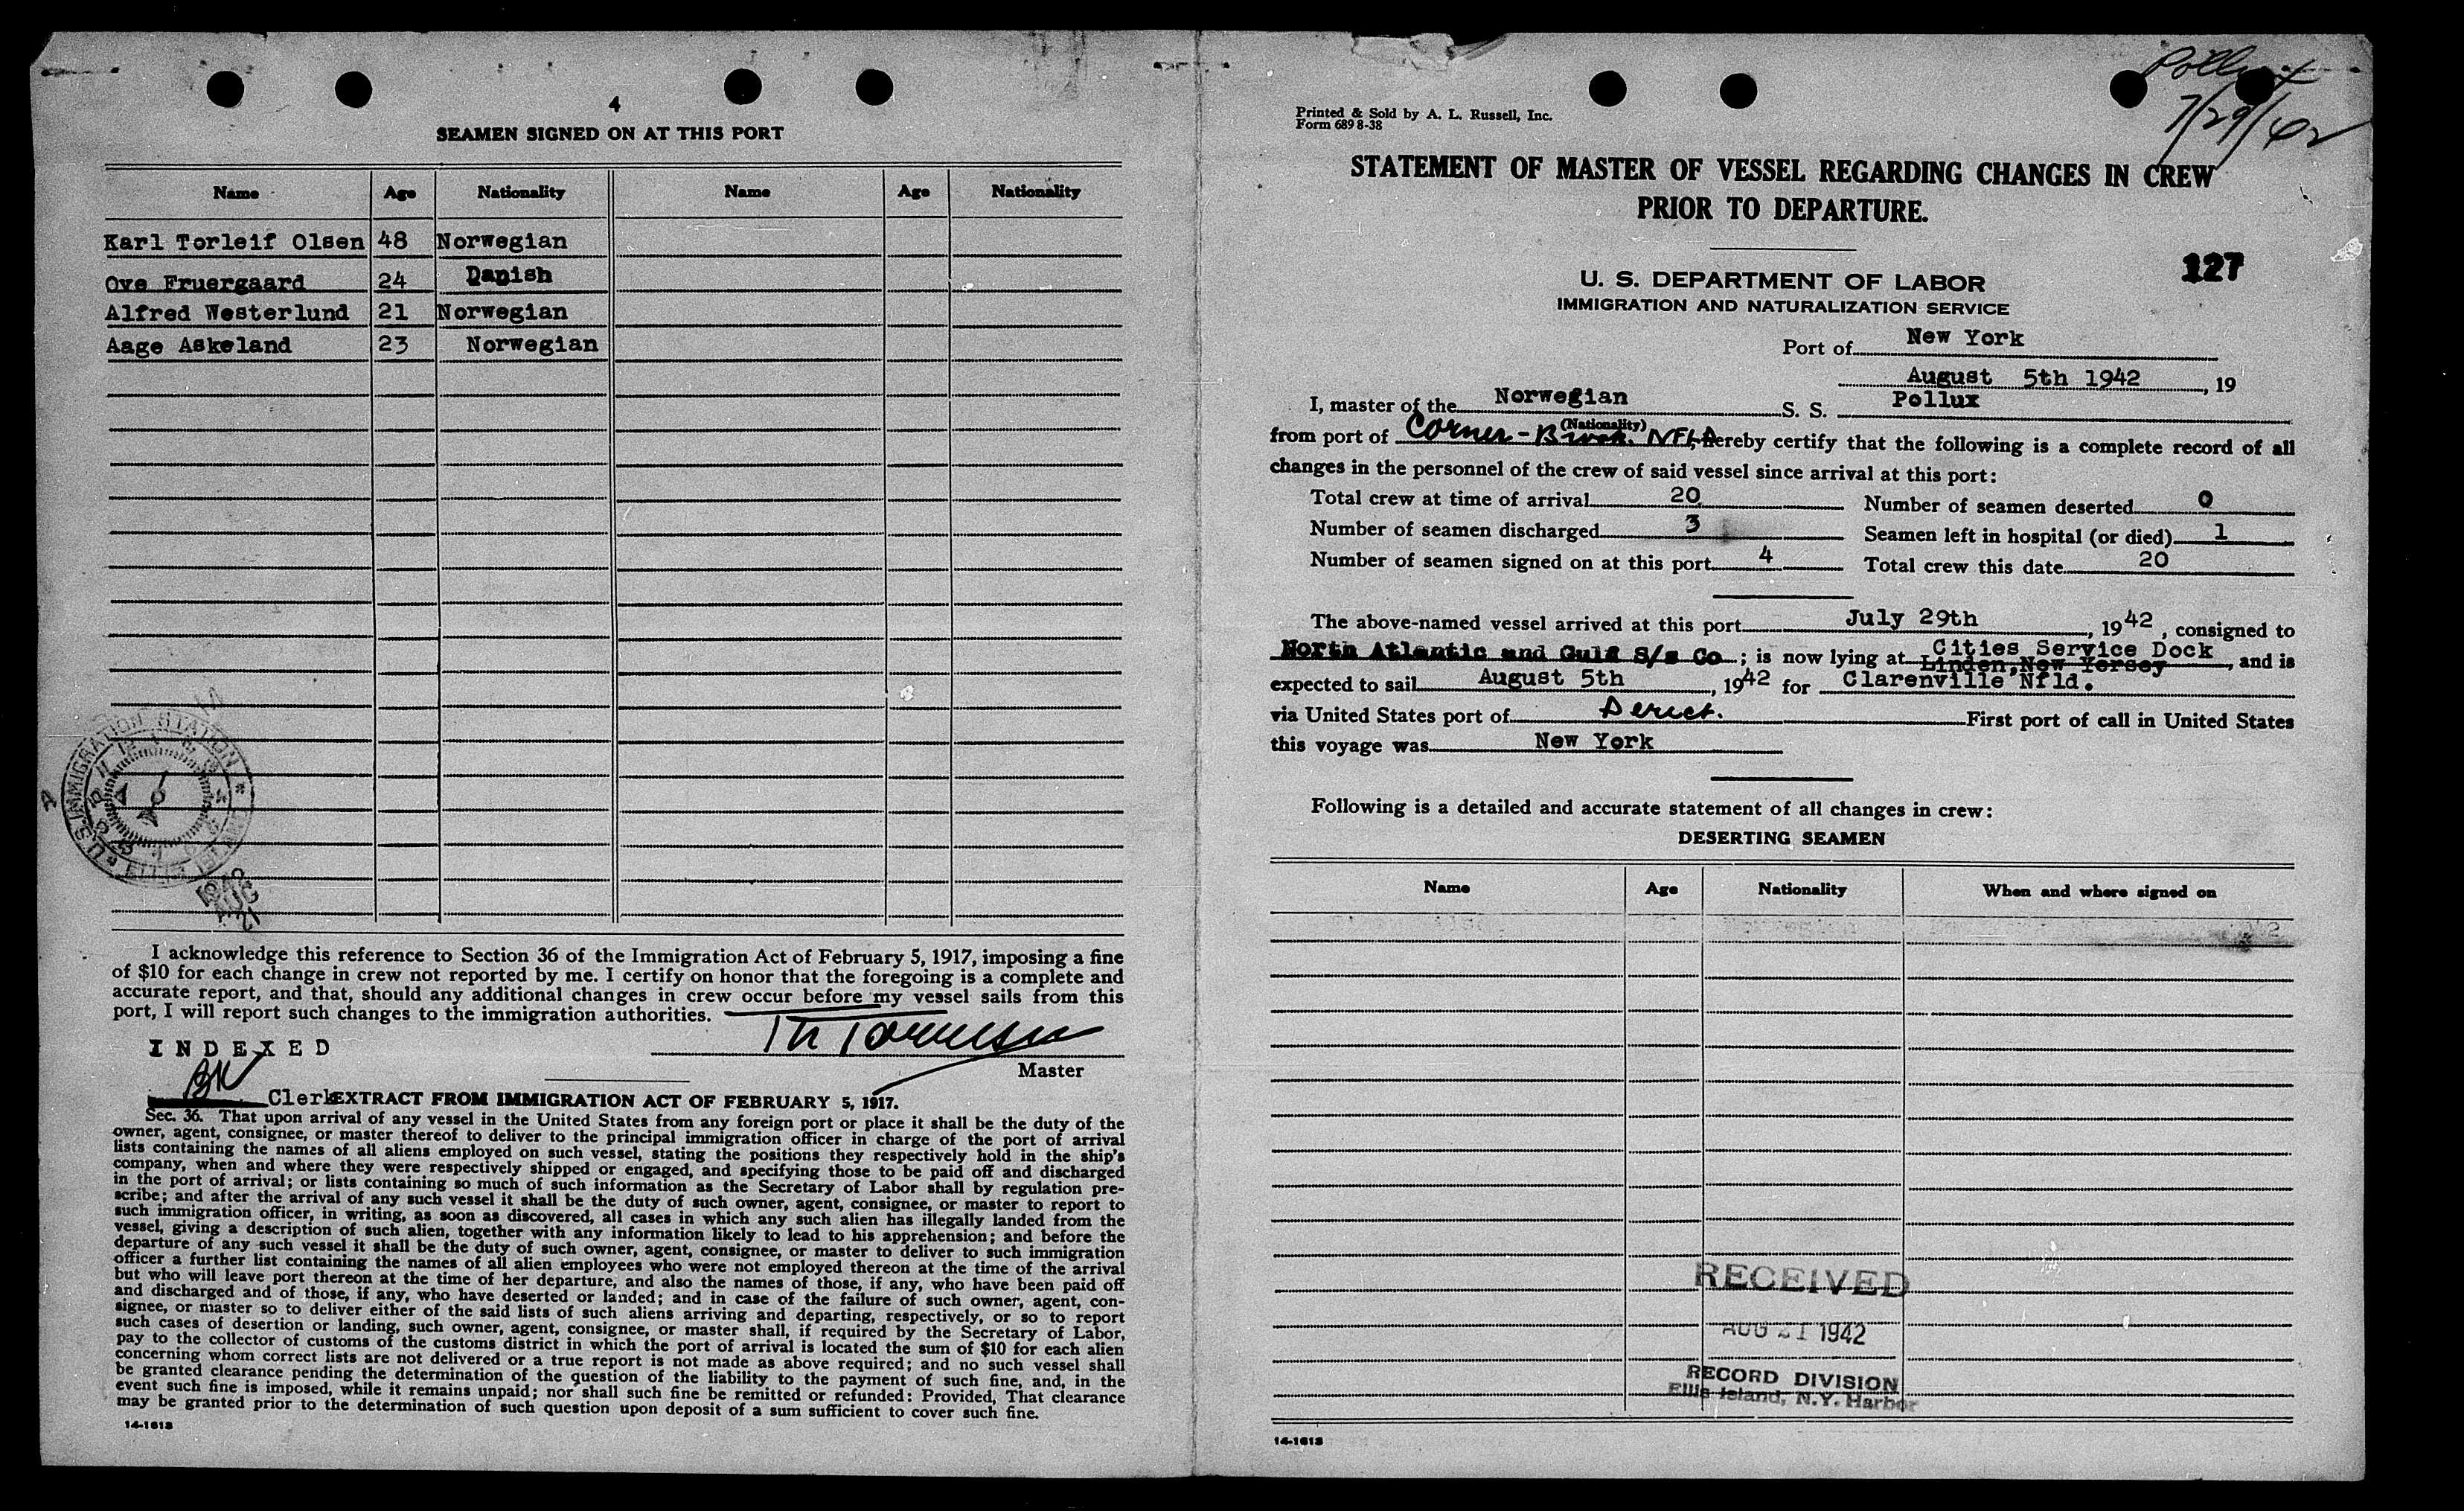 4
SEAMEN SIGNED ON AT THIS PORT
Name Age Nationality Name Age Nationality
Karl Torleif Olsen 48 Norwegian
Ove Fruergaard 24 Danish
Alfred Westerlund 21 Norwegian
Aage Askeland 23 Norwegian
U.S. IMMIGRATION STATION
I acknowledge this reference to Section 36 of the Immigration Act of February 5, 1917, imposing a fine
of $10 for each change in crew not reported by me. I certify on honor that the foregoing is a complete and
accurate report, and that, should any additional changes in crew occur before my vessel sails from this
port, I will report such changes to the immigration authorities.
INDEXED
Master
BK
Clerk EXTRACT FROM IMMIGRATION ACT OF FEBRUARY 5, 1917.
Sec. 36. That upon arrival of any vessel in the United States from any foreign port or place it shall be the duty of the
owner, agent, consignee, or master thereof to deliver to the principal immigration officer in charge of the port of arrival
lists containing the names of all aliens employed on such vessel, stating the positions they respectively hold in the ship's
company, when and where they were respectively shipped or engaged, and specifying those to be paid off and discharged
in the port of arrival; or lists containing so much of such information as the Secretary of Labor shall by regulation pre-
scribe; and after the arrival of any such vessel it shall be the duty of such owner, agent, consignee, or master to report to
such immigration officer, in writing, as soon as discovered, all cases in which any such alien has illegally landed from the
vessel, giving a description of such alien, together with any information likely to lead to his apprehension; and before the
departure of any such vessel it shall be the duty of such owner, agent, consignee, or master to deliver to such immigration
officer a further list containing the names of all alien employees who were not employed thereon at the time of the arrival
but who will leave port thereon at the time of her departure, and also the names of those, if any, who have been paid off
and discharged and of those, if any, who have deserted or landed; and in case of the failure of such owner, agent, con-
signee, or master so to deliver either of the said lists of such aliens arriving and departing, respectively, or so to report
such cases of desertion or landing, such owner, agent, consignee, or master shall, if required by the Secretary of Labor,
pay to the collector of customs of the customs district in which the port of arrival is located the sum of $10 for each alien
concerning whom correct lists are not delivered or a true report is not made as above required; and no such vessel shall
be granted clearance pending the determination of the question of the liability to the payment of such fine, and, in the
event such fine is imposed, while it remains unpaid; nor shall such fine be remitted or refunded: Provided, That clearance
may be granted prior to the determination of such question upon deposit of a sum sufficient to cover such fine.
14-1613
Pollux
7/29/42
Printed & Sold by A. L. Russell, Inc.
Form 689 8-38
STATEMENT OF MASTER OF VESSEL REGARDING CHANGES IN CREW
PRIOR TO DEPARTURE.
127
U. S. DEPARTMENT OF LABOR
IMMIGRATION AND NATURALIZATION SERVICE
Port of New York
August 5th 1942, 19
I, master of the Norwegian S. S. Pollux
(Nationality)
from port of Corner-Brook. NFLD hereby certify that the following is a complete record of all
changes in the personnel of the crew of said vessel since arrival at this port:
Total crew at time of arrival 20 Number of seamen deserted 0
Number of seamen discharged 3 Seamen left in hospital (or died) 1
Number of seamen signed on at this port 4 Total crew this date 20
The above-named vessel arrived at this port July 29th, 1942, consigned to
North Atlantic and Gulf S/s Co; is now lying at Cities Service Dock Linden, New Yersey, and is
expected to sail August 5th, 1942 for Clarenville Nfld.
via United States port of Derect. First port of call in United States
this voyage was New York
Following is a detailed and accurate statement of all changes in crew:
DESERTING SEAMEN
Name Age Nationality When and where signed on
RECEIVED
AUG 21 1942
RECORD DIVISION
Ellis Island, N.Y. Harbor
14-1613